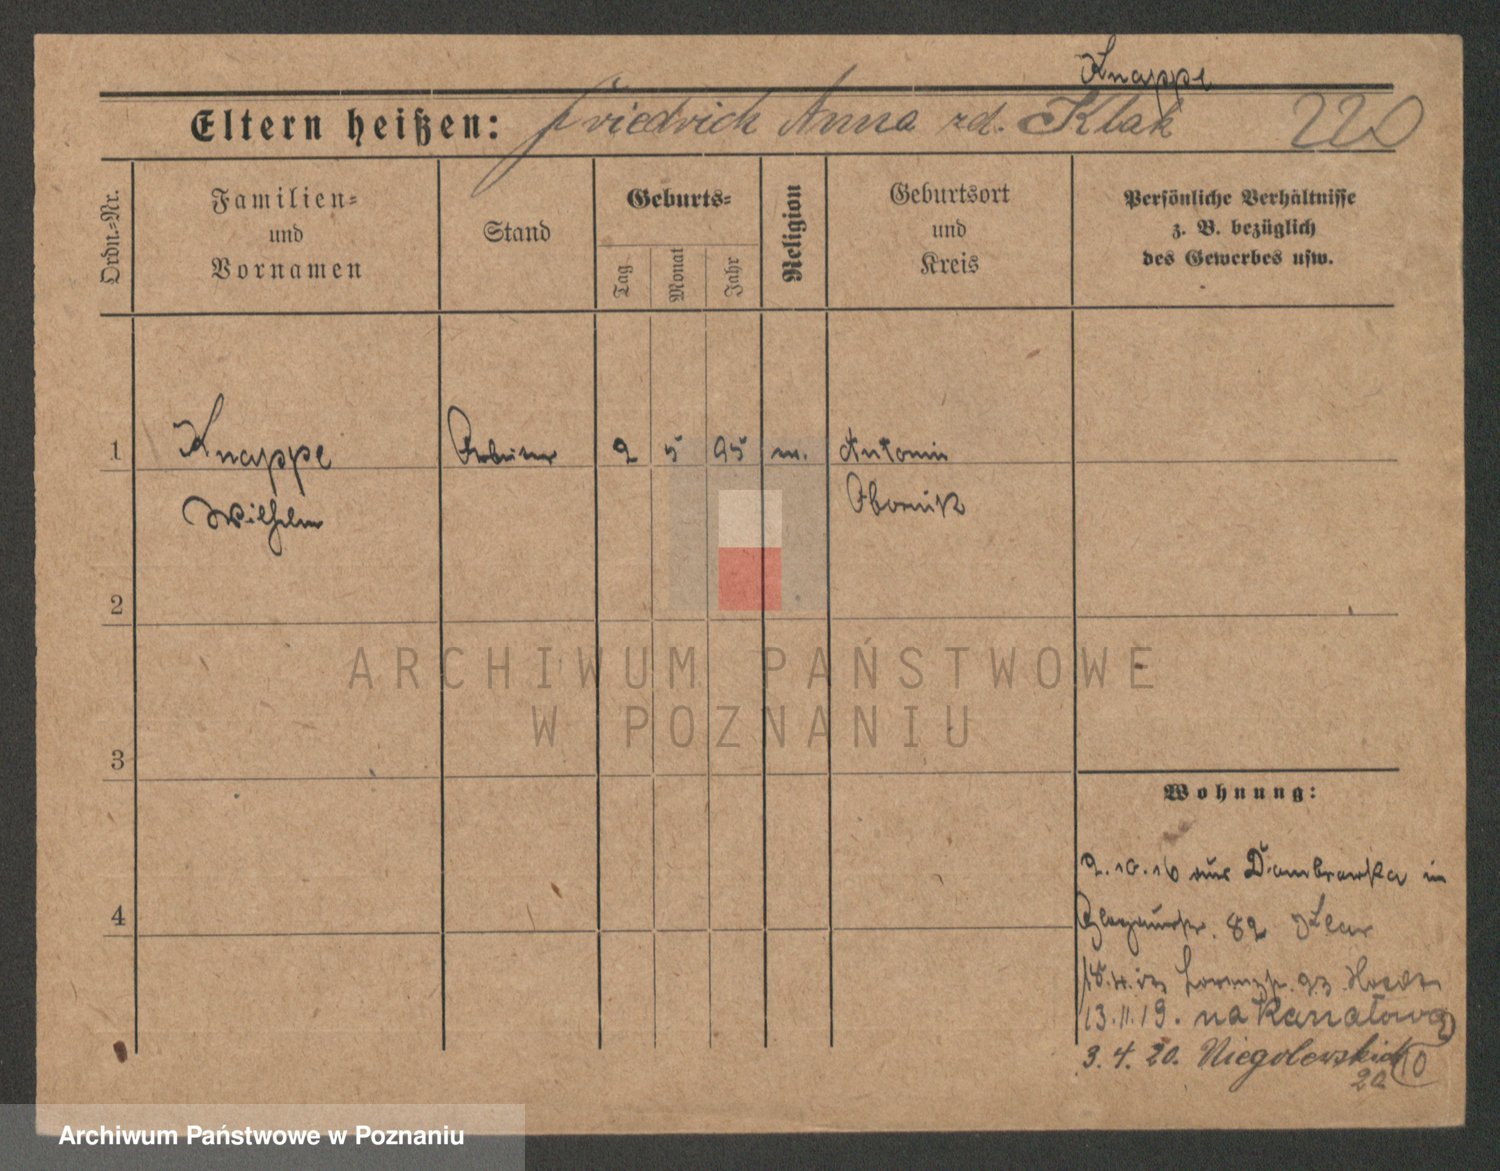 Knappe
Eltern heißen: Friedrich Anna zd. Klak 220
Ordn.-Nr.
Familien-
und
Vornamen
Stand
Geburts-
Tag
Monat
Jahr
Religion
Geburtsort
und
Kreis
Persönliche Verhältnisse
z. B. bezüglich
des Gewerbes usw.
1 Knappe Arbeiter 2 5 95 Antonin
Wilhelm Obornik
2
3
4
Wohnung:
2.10.16 aus Dambrowka in
82
13.11.19. na Kanałowa
3.4.20. Niegolewskich 10
20
ARCHIWUM PAŃSTWOWE
W POZNANIU
Archiwum Państwowe w Poznaniu